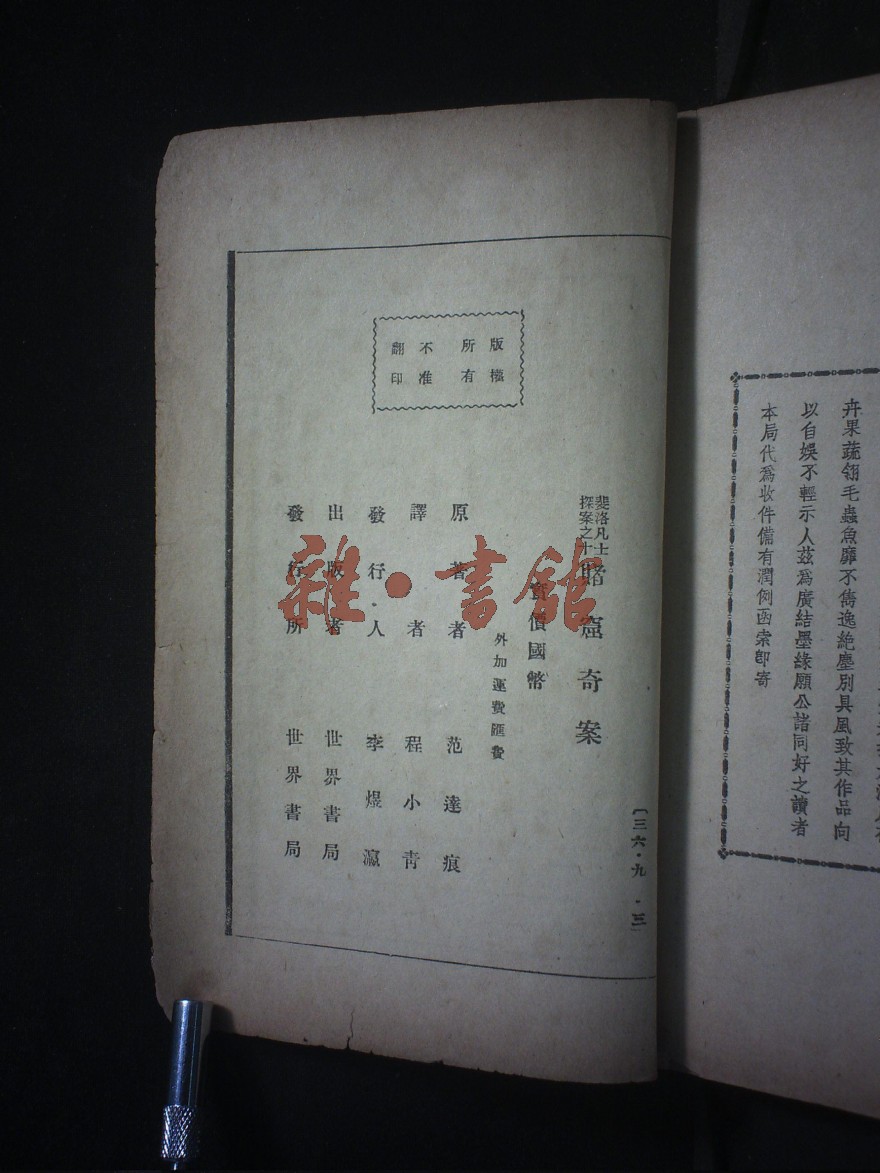 卉果蔬翎毛蟲魚靡不雋逸絶塵別具風致其作品向
以自娛不輕示人茲爲廣結墨緣願公諸同好之讀者
本局代爲收件備有潤例函索卽寄
〔三六·九·三〕
斐洛凡士
探案之十
賭窟奇案
實價國幣
外加運費匯費
原著者 范達痕
譯者 程小青
發行人 李煜瀛
出版者 世界書局
發行所 世界書局
版權
所有
不准
翻印
雜·書館